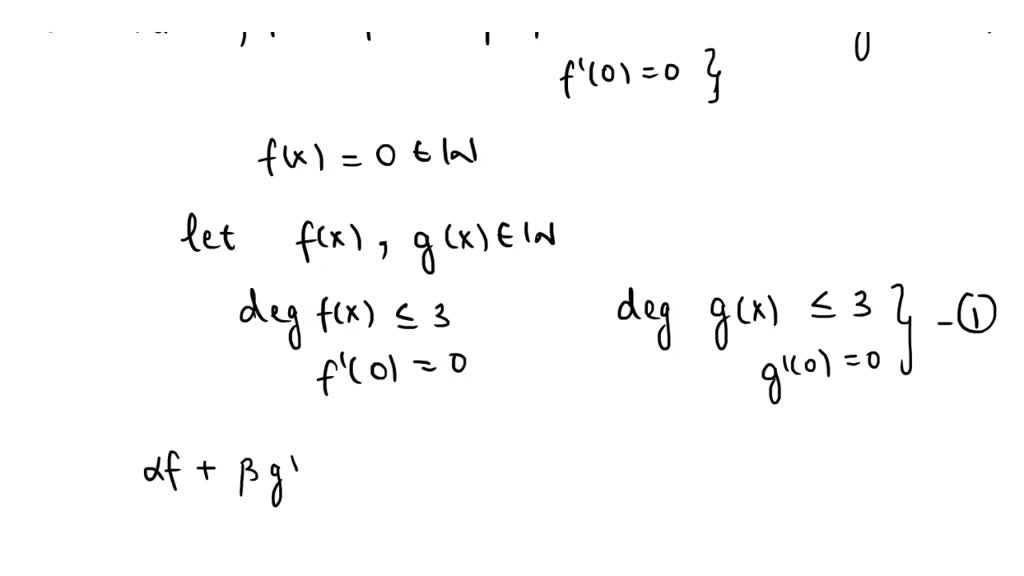 f'(0) = 0 }
f(x) = 0 ∈ W
let f(x), g(x) ∈ W
deg f(x) ≤ 3 deg g(x) ≤ 3 } - ①
f'(0) = 0 g'(0) = 0
αf + βg'